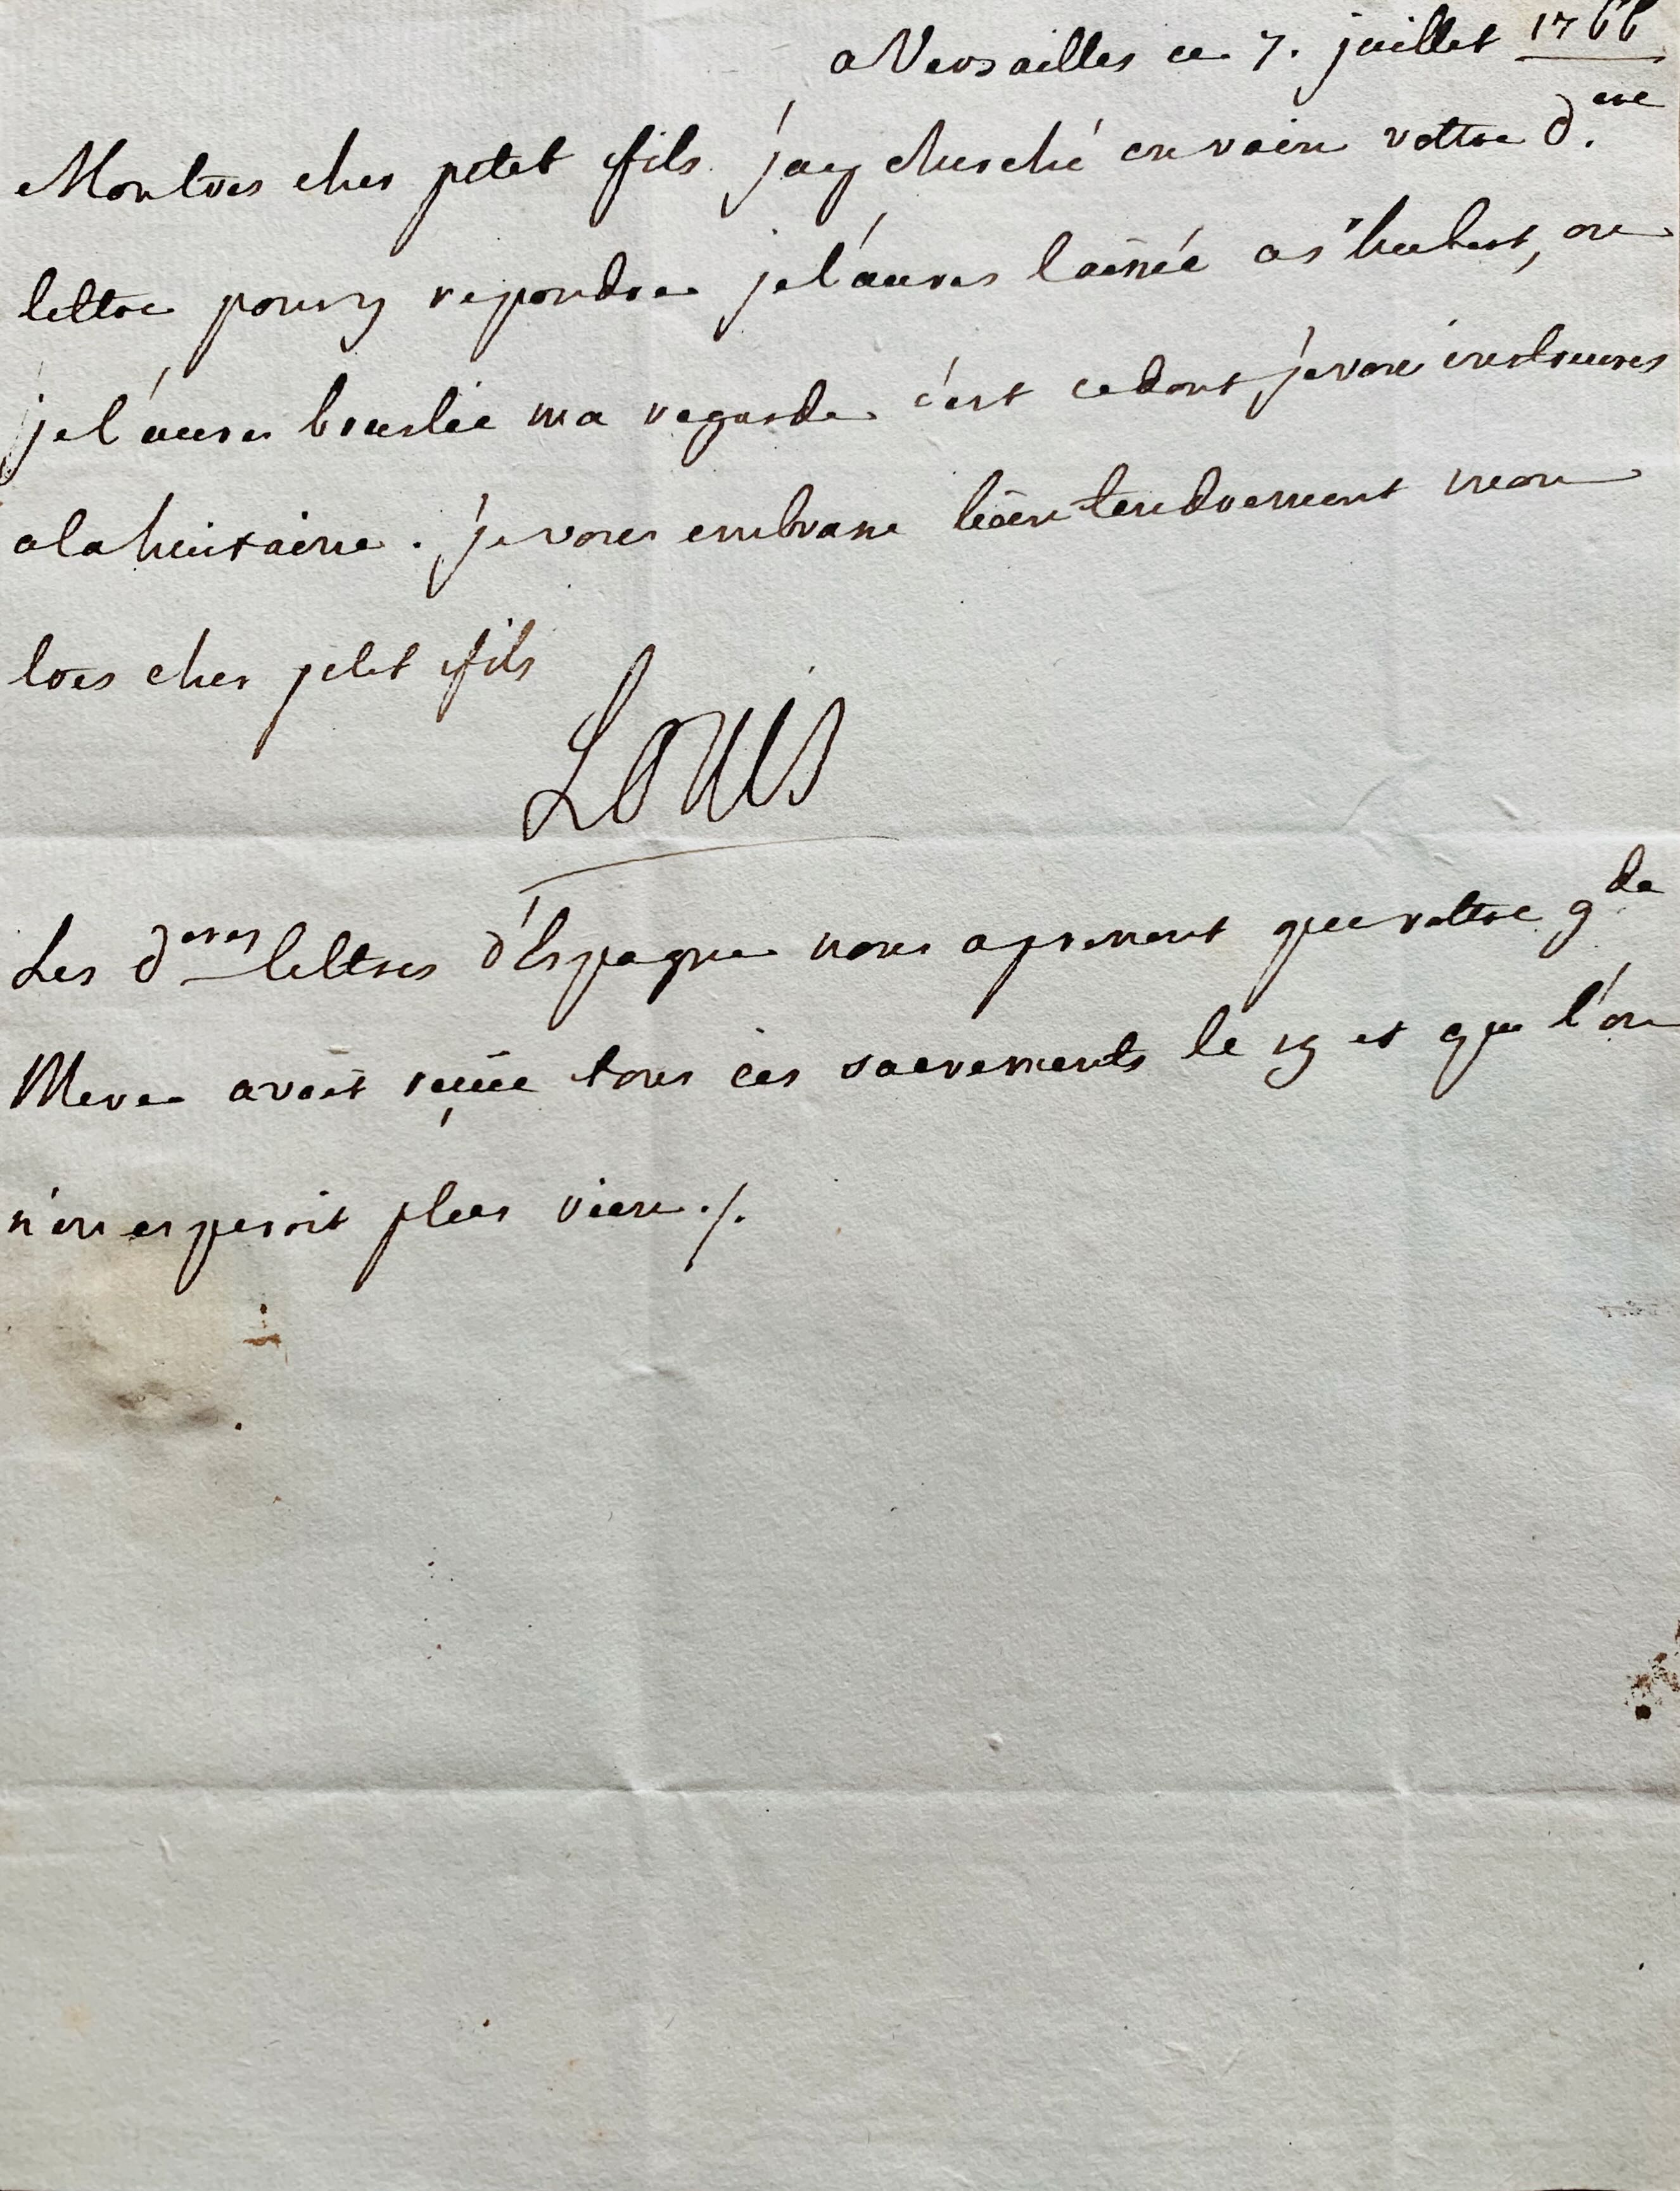 a Versailles ce 7. juillet 1766
Mon tres cher petit fils j'ay cherché en vain vottre d.ere
lettre pour y repondre je l'aures laissée a st hubert, ou
je l'aures bruslée ma regarde c'est ce dont je vous instruires
a la huitaine. je vous embrasse bien tendrement mon
tres cher petit fils
Louis
Les deres lettres d'Espagne nous aprenent que vottre gde
Mere avoit reçüe tous ces sacrements le 19 et que l'on
n'en esperoit plus rien ./.